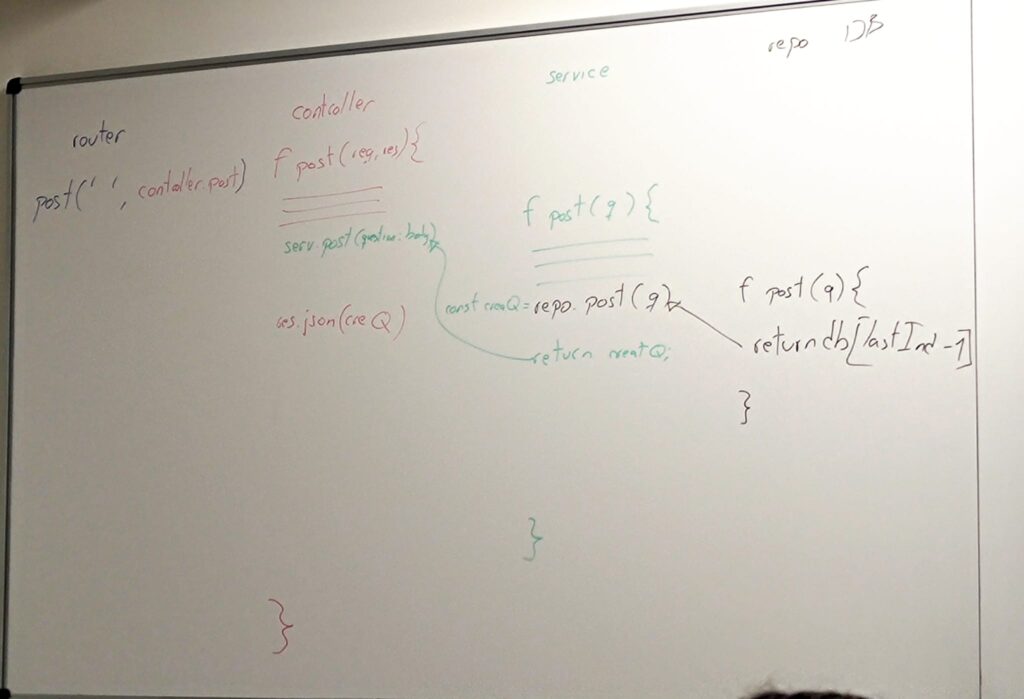 router
post(' ', contoller.post)
contcoller
f post(req, res){
serv.post(question: body)
res.json(cre Q)
}
service
f post(q){
const creaQ = repo.post(q)
return creatQ;
}
repo DB
f post(q){
return db[lastInd-1]
}